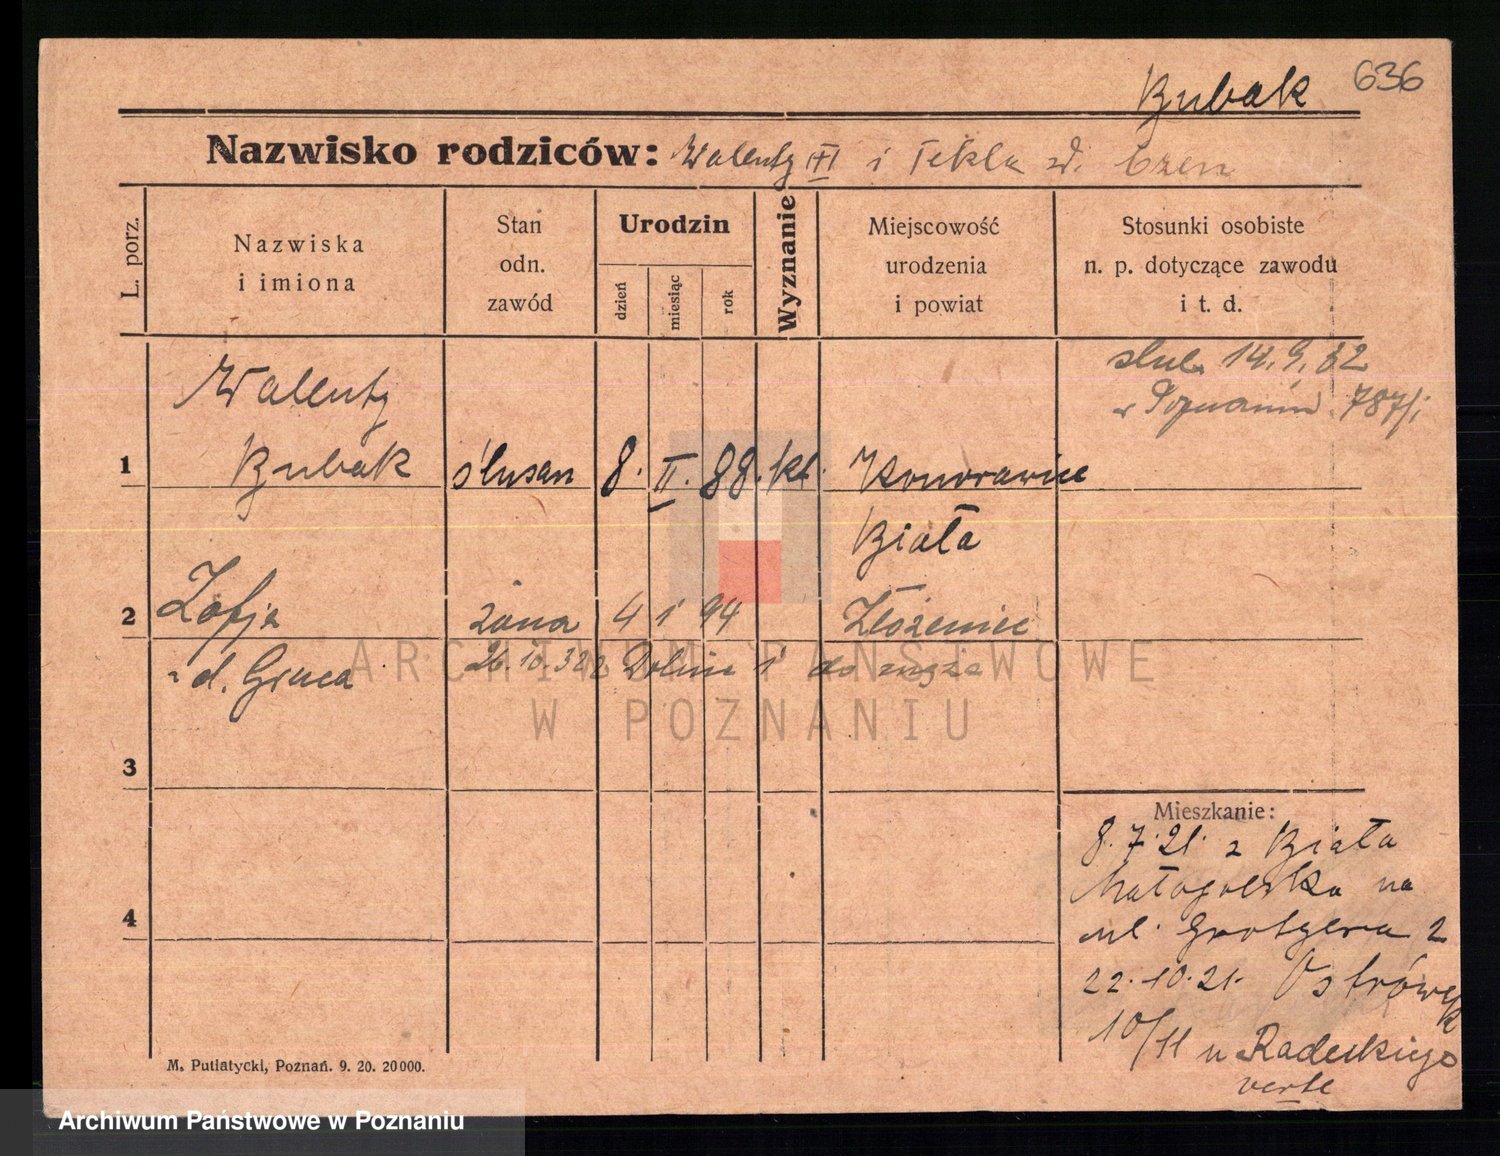 Bubak 636
Nazwisko rodziców: Walenty i Tekla Czen
L. porz.
Nazwiska
i imiona
Stan
odn.
zawód
Urodzin
dzień
miesiąc
rok
Wyznanie
Miejscowość
urodzenia
i powiat
Stosunki osobiste
n. p. dotyczące zawodu
i t. d.
ślub 14. 9. 32
w Poznaniu 787/
Walenty
1 Bubak ślusarz 8. II. 88. kt.
Biała
2 Zofja żona 4 1 94
d. Gruca 26.10.32 z do męża
ARCHIWUM PAŃSTWOWE
W POZNANIU
3
Mieszkanie:
8.7.21. z Biała
Małopolska na
4
ul. Grotgera 2
22.10.21. Ostrówek
10/11 u Radeckiego
verte
M. Putiatycki, Poznań. 9. 20. 20000.
Archiwum Państwowe w Poznaniu